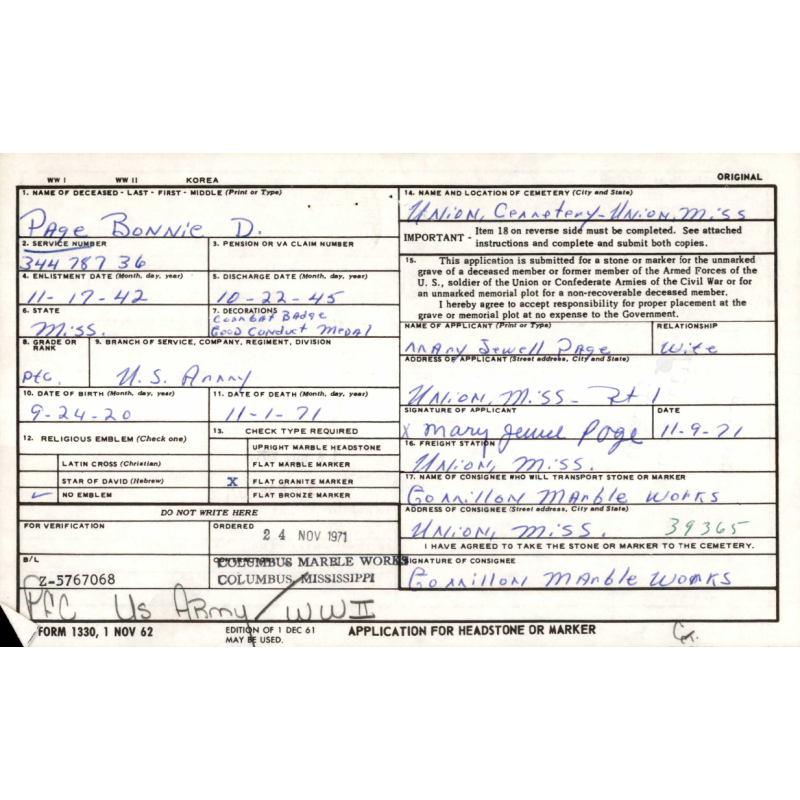 WW I WW II KOREA ORIGINAL
1. NAME OF DECEASED - LAST - FIRST - MIDDLE (Print or Type)
Page Bonnie D.
2. SERVICE NUMBER
344 787 36
3. PENSION OR VA CLAIM NUMBER
4. ENLISTMENT DATE (Month, day, year)
11-17-42
5. DISCHARGE DATE (Month, day, year)
10-22-45
6. STATE
Miss.
7. DECORATIONS
Combat Badge
Good Conduct Medal
8. GRADE OR RANK
Pfc.
9. BRANCH OF SERVICE, COMPANY, REGIMENT, DIVISION
U.S. Army
10. DATE OF BIRTH (Month, day, year)
9-24-20
11. DATE OF DEATH (Month, day, year)
11-1-71
12. RELIGIOUS EMBLEM (Check one)
LATIN CROSS (Christian)
STAR OF DAVID (Hebrew)
✓ NO EMBLEM
13. CHECK TYPE REQUIRED
UPRIGHT MARBLE HEADSTONE
FLAT MARBLE MARKER
X FLAT GRANITE MARKER
FLAT BRONZE MARKER
DO NOT WRITE HERE
FOR VERIFICATION
ORDERED
24 NOV 1971
B/L
Z-5767068
COLUMBUS MARBLE WORKS
COLUMBUS, MISSISSIPPI
PFC US Army / WW II
14. NAME AND LOCATION OF CEMETERY (City and State)
Union, Cemetery-Union, Miss
IMPORTANT - Item 18 on reverse side must be completed. See attached
instructions and complete and submit both copies.
15. This application is submitted for a stone or marker for the unmarked
grave of a deceased member or former member of the Armed Forces of the
U. S., soldier of the Union or Confederate Armies of the Civil War or for
an unmarked memorial plot for a non-recoverable deceased member.
I hereby agree to accept responsibility for proper placement at the
grave or memorial plot at no expense to the Government.
NAME OF APPLICANT (Print or Type)
Mary Jewell Page
RELATIONSHIP
Wife
ADDRESS OF APPLICANT (Street address, City and State)
Union, Miss - Rt 1
SIGNATURE OF APPLICANT
X Mary Jewel Page
DATE
11-9-71
16. FREIGHT STATION
Union, Miss.
17. NAME OF CONSIGNEE WHO WILL TRANSPORT STONE OR MARKER
Gorrillon Marble Works
ADDRESS OF CONSIGNEE (Street address, City and State)
Union, Miss. 39365
I HAVE AGREED TO TAKE THE STONE OR MARKER TO THE CEMETERY.
SIGNATURE OF CONSIGNEE
Gorrillon Marble Works
FORM 1330, 1 NOV 62
EDITION OF 1 DEC 61
MAY BE USED.
APPLICATION FOR HEADSTONE OR MARKER